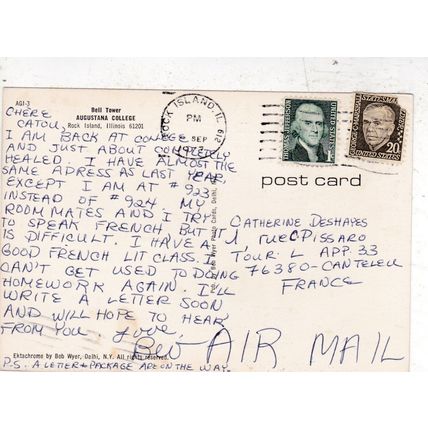 AGI-3
Bell Tower
AUGUSTANA COLLEGE
Rock Island, Illinois 61201
CHÈRE
CATOU,
I AM BACK AT COLLEGE
AND JUST ABOUT COMPLETELY
HEALED. I HAVE ALMOST THE
SAME ADRESS AS LAST YEAR,
EXCEPT I AM AT #923
INSTEAD OF #924. MY
ROOMMATES AND I TRY
TO SPEAK FRENCH, BUT IT
IS DIFFICULT. I HAVE A
GOOD FRENCH LIT CLASS. I
CAN'T GET USED TO DOING
HOMEWORK AGAIN. I'LL
WRITE A LETTER SOON
AND WILL HOPE TO HEAR
FROM YOU. Love,
Bev
Ektachrome by Bob Wyer, Delhi, N.Y. All rights reserved.
P.S. A LETTER + PACKAGE ARE ON THE WAY.
Bob Wyer Photo Cards, Delhi,
ROCK ISLAND, IL 612
PM
SEP
THOMAS JEFFERSON
1c
UNITED STATES
STATESMAN
20c
UNITED STATES
post card
CATHERINE DESHAYES
1, rue C. PISSARO
TOUR. L APP. 33
76380-CANTELEU
FRANCE
AIR MAIL